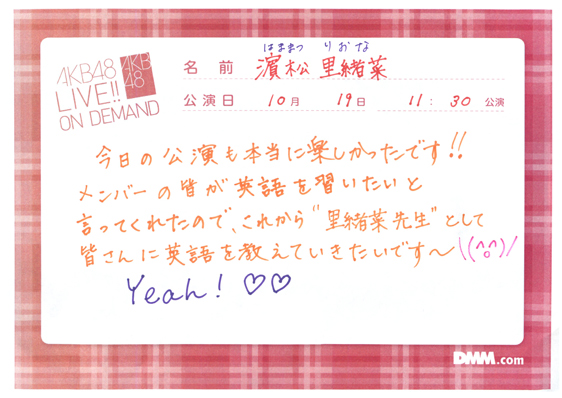 AKB48
LIVE!!
ON DEMAND
AKB
48
はままつ りおな
名 前 濵松 里緒菜
公演日 10月 19日 11:30 公演
今日の公演も本当に楽しかったです!!
メンバーの皆が英語を習いたいと
言ってくれたので、これから“里緒菜先生”として
皆さんに英語を教えていきたいです〜\(^o^)/
Yeah! ♡♡
DMM.com